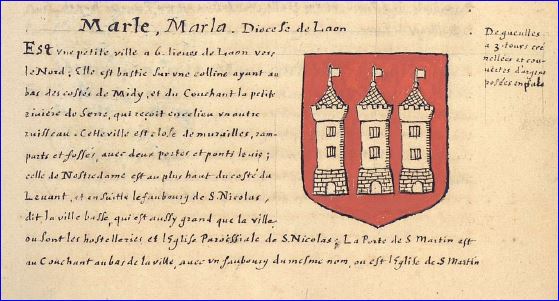 Marle, Marla. Diocese de Laon
Est vne petite ville a 6. lieues de Laon vers
le Nord; Elle est bastie sur vne colline ayant au
bas des costés de Midy, et du Couchant la petite
riviére de Serre, qui reçoit en ce lieu vn autre
ruisseau. Cette ville est close de murailles, ram-
parts et fossés, avec deux portes et ponts levis;
celle de Nostre dame est au plus haut du costé du
Levant, et en suitte le faubourg de S. Nicolas,
dit la ville basse, qui est aussy grand que la ville
ou sont les hostelleries et l'Eglise Paroëssiale de S. Nicolas; La Porte de S Martin est
au Couchant au bas de la ville, avec vn faubourg du mesme nom, ou est l'Eglise de S Martin
De gueulles
a 3 tours cré
nellées et cou-
vertes d'argent
posées en pale